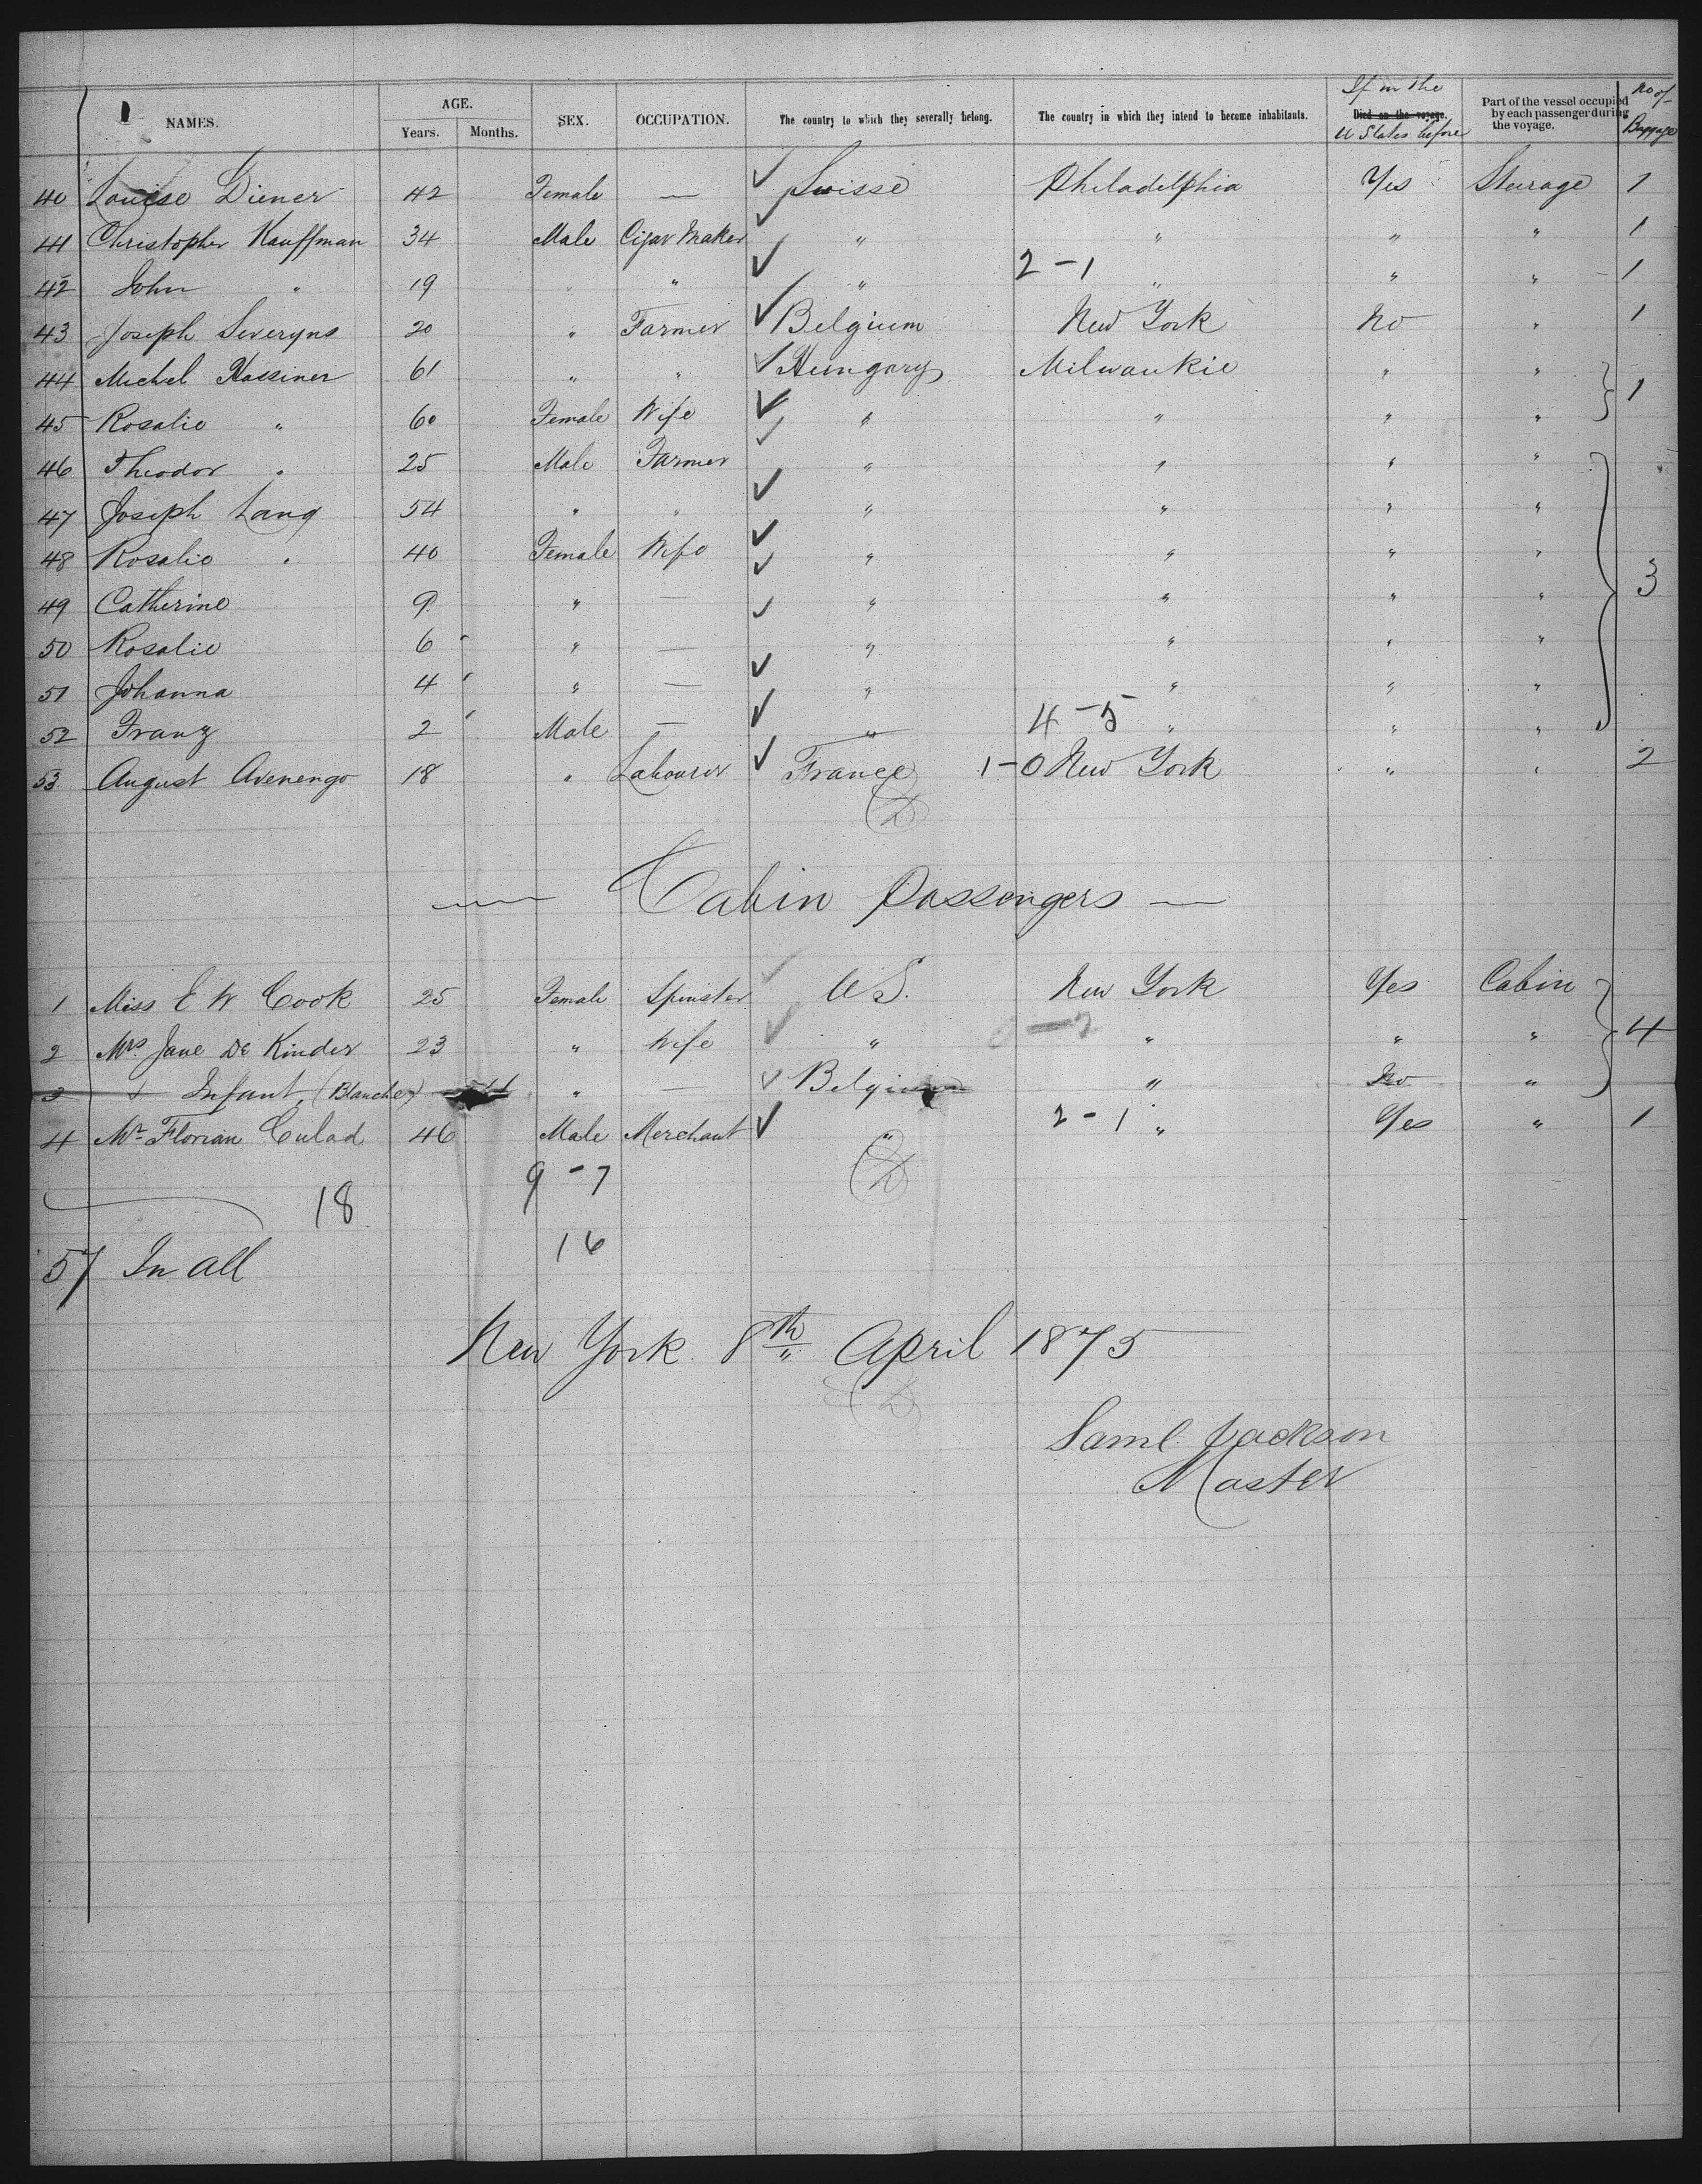 NAMES. AGE. Years. Months. SEX. OCCUPATION. The country to which they severally belong. The country in which they intend to become inhabitants. If in the Died on the voyage. U States before Part of the vessel occupied by each passenger during the voyage. No of Baggage
40 Louise Diener 42 Female — Suisse Philadelphia Yes Steerage 1
41 Christopher Kauffman 34 Male Cigar Maker " " " " 1
42 John " 19 " " " 2-1 " " " 1
43 Joseph Severyns 20 " Farmer Belgium New York No " 1
44 Michel Hassiner 61 " " Hungary Milwaukie " " 1
45 Rosalie " 60 Female Wife " " " "
46 Theodor " 25 Male Farmer " " " "
47 Joseph Lang 54 " " " " " "
48 Rosalie " 40 Female Wife " " " " 3
49 Catherine 9 " — " " " "
50 Rosalie 6 " — " " " "
51 Johanna 4 " — " " " "
52 Franz 2 Male — " 4-5 " " "
53 August Avenengo 18 " Labourer France 1-0 New York " " 2
Cabin Passengers
1 Miss E W Cook 25 Female Spinster U S. New York Yes Cabin
2 Mrs Jane De Kinder 23 " Wife " " " " 4
3 + Infant (Blanche) 11 " — Belgium " No "
4 Mr Florian Culad 46 Male Merchant " 2-1 " Yes " 1
9-7
18
16
57 In all
New York 8th April 1875
Saml. Jackson
Master